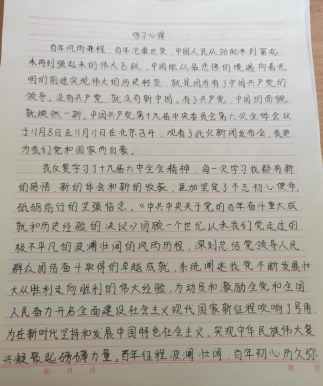 学习心得
百年风雨兼程，百年沧桑巨变，中国人民从站起来到富起
来再到强起来的伟大飞跃，中国能从最悲惨的境遇向着光
明的前途实现伟大的历史转变，就是因为有了中国共产党的
领导。没有共产党，就没有新中国，有了共产党，中国的面貌
就焕然一新。中国共产党第十九届中央委员会第六次全体会议
于11月8日至11月11日在北京召开，观看了此次新闻发布会，我更
为我们党和国家而自豪。
我反复学习了十九届六中全会精神，每一次学习我都有新
的感悟、新的体会和新的收获，更加坚定了不忘初心使命，
砥砺前行的坚强信念。《中共中央关于党的百年奋斗重大成
就和历史经验的决议》回放一个世纪以来我们党走过的
极不平凡的波澜壮阔的风雨历程，深刻总结党领导人民
群众团结奋斗取得的卓越成就，系统阐述我党不断发展壮
大从胜利走向胜利的伟大经验，为动员和激励全党和全国
人民奋力开启全面建设社会主义现代国家新征程吹响了号角，
为在新时代坚持和发展中国特色社会主义，实现中华民族伟大复
兴凝聚起磅礴力量，百年征程波澜壮阔，百年初心历久弥
年 月 日 第 页